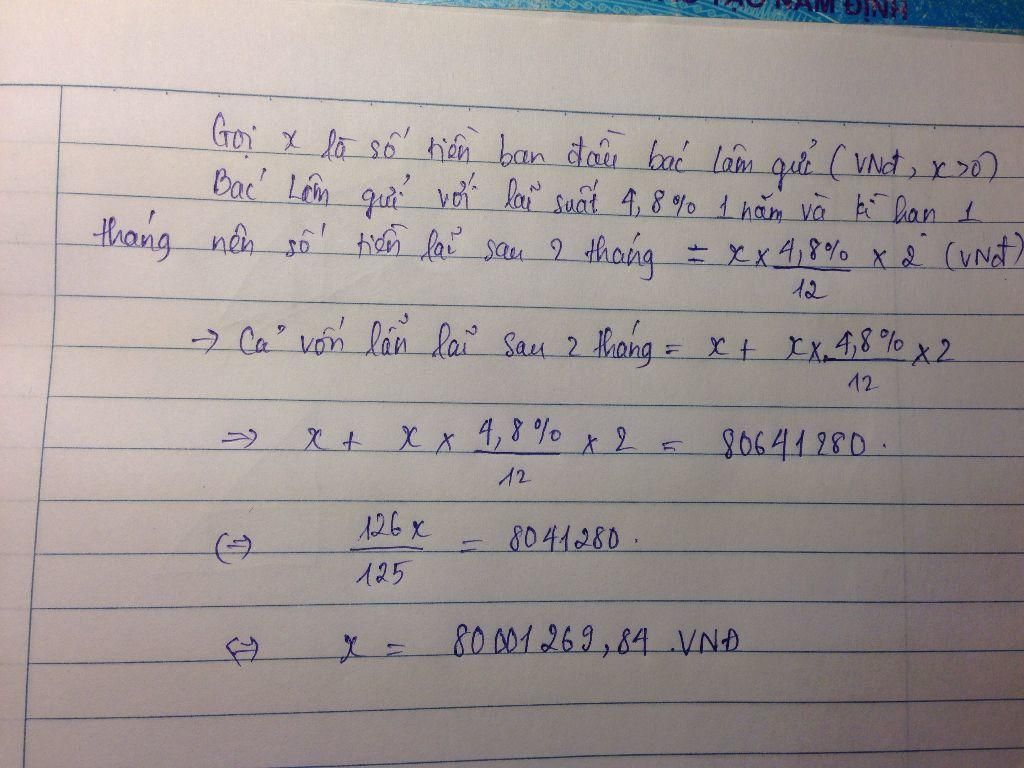 TẠO NAM ĐỊNH
Gọi x là số tiền ban đầu bác Lâm gửi (VNđ, x>0)
Bác Lâm gửi với lãi suất 4,8% 1 năm và kì hạn 1
tháng nên số tiền lãi sau 2 tháng = x × 4,8%/12 × 2 (VNđ)
→ Cả vốn lẫn lãi sau 2 tháng = x + x × 4,8%/12 × 2
=> x + x × 4,8%/12 × 2 = 80641280.
(=> 126x/125 = 8041280.
<=> x = 80001269,84 .VNĐ